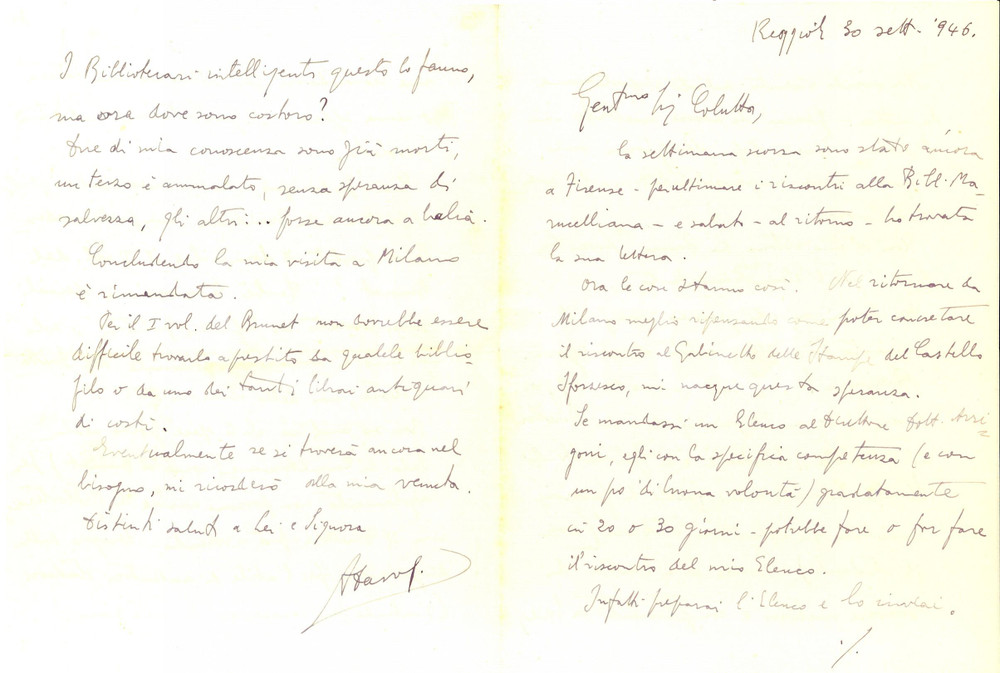 Reggio E. 30 sett. '946.
Gent.mo Sig. Colutta,
la settimana scorsa sono stato ancora
a Firenze - per ultimare i riscontri alla Bibl. Ma-
rucelliana - e sabato - al ritorno - ho trovata
la sua lettera.
Ora le cose stanno così. Nel ritornare da
Milano meglio ripensando come poter concretare
il riscontro al Gabinetto delle Stampe del Castello
Sforzesco, mi nacque questa speranza.
Se mandassi un Elenco al Direttore Dott. Arri-
goni, egli con la specifica competenza (e con
un po' di buona volontà) gradatamente
in 20 o 30 giorni - potrebbe fare o far fare
il riscontro del mio Elenco.
Infatti preparai l'Elenco e lo inviai.
./.
I Bibliotecari intelligenti questo lo fanno,
ma ora dove sono costoro?
Due di mia conoscenza sono già morti,
un terzo è ammalato, senza speranza di
salvezza, gli altri... forse ancora a balia.
Concludendo la mia visita a Milano
è rimandata.
Per il I vol. del Brunet non dovrebbe essere
difficile trovarlo a prestito da qualche biblio-
filo o da uno dei tanti librai antiquari
di costì.
Eventualmente se si troverà ancora nel
bisogno, mi ricorderò alla mia venuta.
Distinti saluti a Lei e Signora